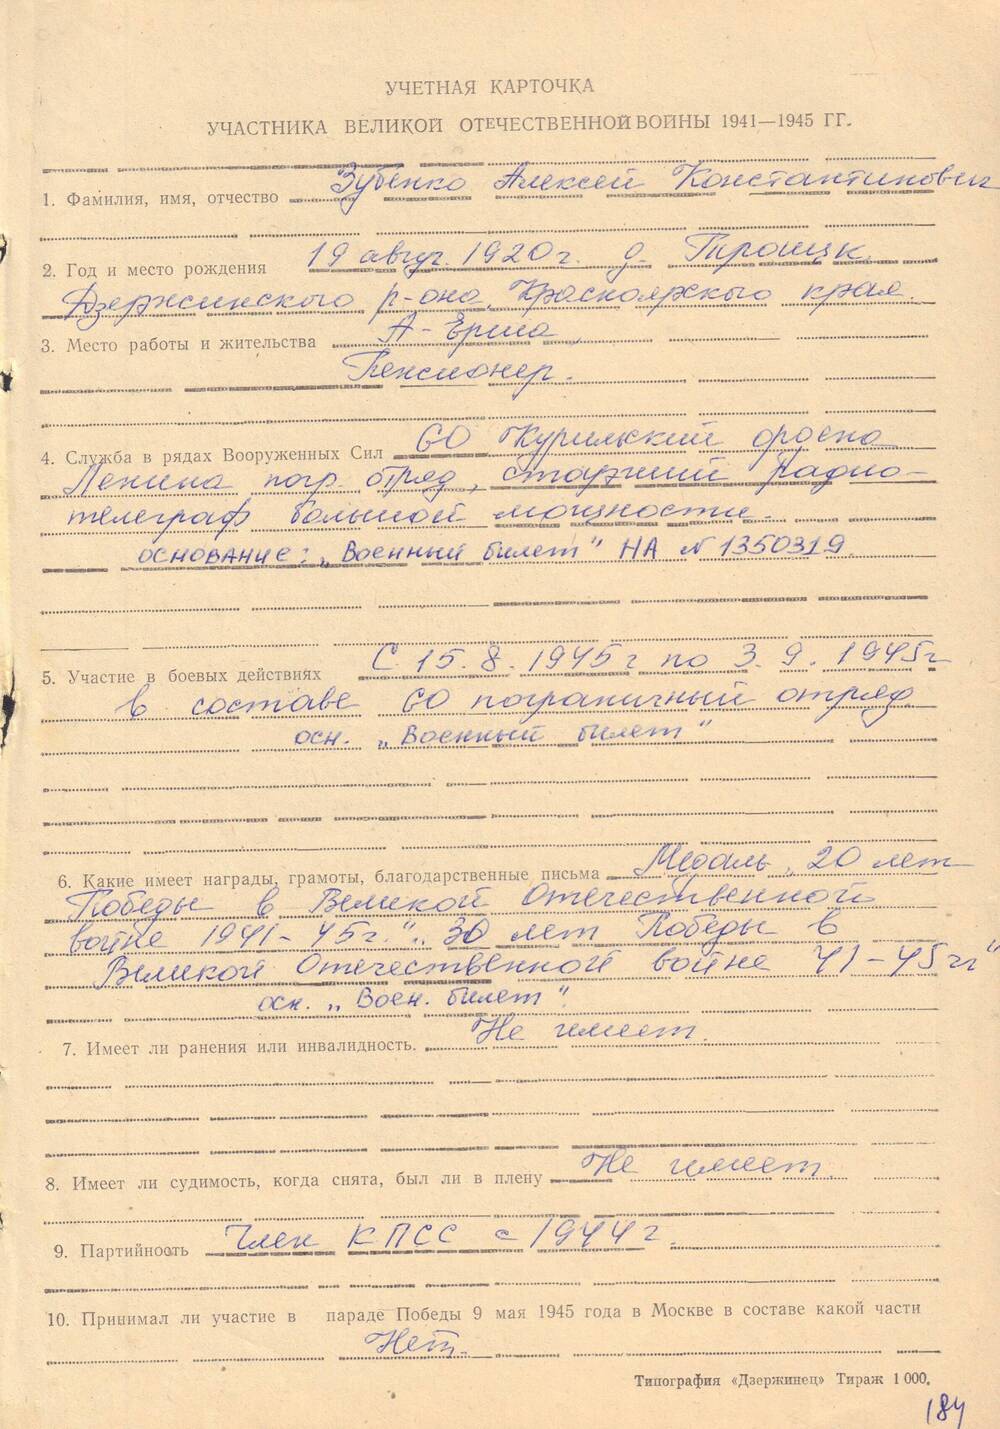 УЧЕТНАЯ КАРТОЧКА
УЧАСТНИКА ВЕЛИКОЙ ОТЕЧЕСТВЕННОЙ ВОЙНЫ 1941—1945 ГГ.
1. Фамилия, имя, отчество Зубенко Алексей Константинович
2. Год и место рождения 19 авгус. 1920г. д. Троицк
Дзержинского р-она, Красноярского края.
3. Место работы и жительства А-Ерша,
Пенсионер.
4. Служба в рядах Вооруженных Сил 60 Курильский ордена
Ленина погр. отряд, старший радио-
телеграф большой мощности.
основание: „Военный билет" НА №1350319.
5. Участие в боевых действиях С 15.8.1945г по 3.9.1945г
в составе 60 пограничный отряд.
осн. „Военный билет"
6. Какие имеет награды, грамоты, благодарственные письма Медаль „20 лет
Победы в Великой Отечественной
войне 1941-45г." „30 лет Победы в
Великой Отечественной войне 41-45гг"
осн. „Воен. билет".
7. Имеет ли ранения или инвалидность. Не имеет.
8. Имеет ли судимость, когда снята, был ли в плену Не имеет.
9. Партийность Член КПСС с 1944г.
10. Принимал ли участие в параде Победы 9 мая 1945 года в Москве в составе какой части
Нет.
Типография «Дзержинец» Тираж 1 000.
184